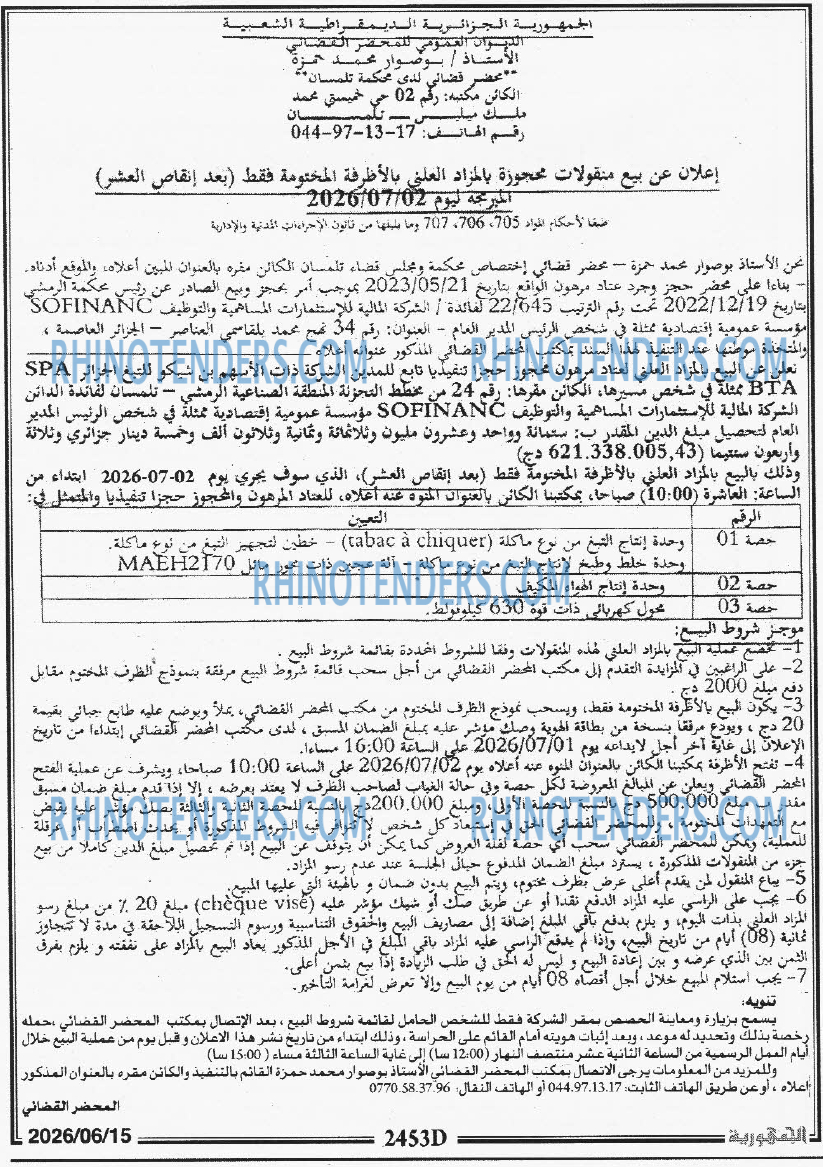 الجمهورية الجزائرية الديمقراطية الشعبية
الديوان العمومي للمحضر القضائي
الأستاذ / بوصوار محمد حمزة
**محضر قضائي لدى محكمة تلمسان**
الكائن مكتبه: رقم 02 حي خميستي محمد
ملك ميليس – تلمسان
رقم الهاتف: 17-13-97-044
إعلان عن بيع منقولات محجوزة بالمزاد العلني بالأظرفة المختومة فقط (بعد إنقاص العشر)
المبرمجة ليوم 2026/07/02
طبقا لأحكام المواد 705، 706، 707 وما يليها من قانون الإجراءات المدنية والإدارية
نحن الأستاذ بوصوار محمد حمزة – محضر قضائي إختصاص محكمة ومجلس قضاء تلمسان الكائن مقره بالعنوان المبين أعلاه، والموقع أدناه.
– بناءا على محضر حجز وجرد عتاد مرهون الواقع بتاريخ 2023/05/21 بموجب أمر بحجز وبيع الصادر عن رئيس محكمة الرمشي
بتاريخ 2022/12/19 تحت رقم الترتيب 22/645 لفائدة / الشركة المالية للإستثمارات المساهمية والتوظيف SOFINANC
مؤسسة عمومية إقتصادية ممثلة في شخص الرئيس المدير العام – العنوان: رقم 34 نهج محمد بلقاسمي العناصر – الجزائر العاصمة ،
والمتخذة موطنها عند التنفيذ لهذا السند بمكتب المحضر القضائي المذكور عنوانه أعلاه
RHINOTENDERS.COM RHINOTENDERS.COM
نعلن عن البيع بالمزاد العلني لعتاد مرهون محجوز حجزا تنفيذيا تابع للمدين الشركة ذات الأسهم بن شيكو للتبغ الجزائر SPA
BTA ممثلة في شخص مسيرها، الكائن مقرها: رقم 24 من مخطط التجزئة المنطقة الصناعية الرمشي – تلمسان لفائدة الدائن
الشركة المالية للإستثمارات المساهمية والتوظيف SOFINANC مؤسسة عمومية إقتصادية ممثلة في شخص الرئيس المدير
العام لتحصيل مبلغ الدين المقدر ب: ستمائة وواحد وعشرون مليون وثلاثمائة وثمانية وثلاثون ألف وخمسة دينار جزائري وثلاثة
وأربعون سنتيما (621.338.005,43 دج)
وذلك بالبيع بالمزاد العلني بالأظرفة المختومة فقط (بعد إنقاص العشر)، الذي سوف يجري يوم 02-07-2026 ابتداء من
الساعة: العاشرة (10:00) صباحا، بمكتبنا الكائن بالعنوان المنوه عنه أعلاه، للعتاد المرهون والمحجوز حجزا تنفيذيا والمتمثل في:
الرقم التعيين
حصة 01 وحدة إنتاج التبغ من نوع ماكلة (tabac à chiquer) – خطين لتجهيز التبغ من نوع ماكلة.
وحدة خلط وطبخ لإنتاج التبغ من نوع ماكلة – آلة عجين ذات محور مائل MAEH2170
RHINOTENDERS.COM
حصة 02 وحدة إنتاج الهواء المكيف
حصة 03 محول كهربائي ذات قوة 630 كيلوفولط.
موجز شروط البيع:
1– تخضع عملية البيع بالمزاد العلني لهذه المنقولات وفقا للشروط المحددة بقائمة شروط البيع .
2– على الراغبين في المزايدة التقدم إلى مكتب المحضر القضائي من أجل سحب قائمة شروط البيع مرفقة بنموذج الظرف المختوم مقابل
دفع مبلغ 2000 دج .
3– يكون البيع بالأظرفة المختومة فقط، ويسحب نموذج الظرف المختوم من مكتب المحضر القضائي، يملأ ويوضع عليه طابع جبائي بقيمة
20 دج ، ويودع مرفقا بنسخة من بطاقة الهوية وصك مؤشر عليه بمبلغ الضمان المسبق ، لدى مكتب المحضر القضائي إبتداءا من تاريخ
الإعلان إلى غاية آخر أجل لايداعه يوم 2026/07/01 على الساعة 16:00 مساءا.
4– تفتح الأظرفة بمكتبنا الكائن بالعنوان المنوه عنه أعلاه يوم 2026/07/02 على الساعة 10:00 صباحا، ويشرف عن عملية الفتح
المحضر القضائي ويعلن عن المبالغ المعروضة لكل حصة وفي حالة الغياب لصاحب الظرف لا يعتد بعرضه ، إلا إذا قدم مبلغ ضمان مسبق
مقدر ب مبلغ 500.000 دج بالنسبة للحصة الأولى ومبلغ 200.000دج بالنسبة للحصة الثانية والثالثة بصك مؤشر عليه يقبض
RHINOTENDERS.COM RHINOTENDERS.COM
مع التعهدات المختومة ، وللمحضر القضائي الحق في إستبعاد كل شخص لا تتوافر فيه الشروط المذكورة أو يحدث اضطراب أو عرقلة
للعملية، ويمكن للمحضر القضائي سحب أي حصة لقلة العروض كما يمكن أن يتوقف عن البيع إذا تم تحصيل مبلغ الدين كاملا من بيع
جزء من المنقولات المذكورة ، يسترد مبلغ الضمان المدفوع حيال الجلسة عند عدم رسو المزاد.
5– يباع المنقول لمن يقدم أعلى عرض بظرف مختوم، ويتم البيع بدون ضمان و بالهيئة التي عليها المبيع.
6– يجب على الراسي عليه المزاد الدفع نقدا أو عن طريق صك أو شيك مؤشر عليه (chèque visé) مبلغ 20 ٪ من مبلغ رسو
المزاد العلني بذات اليوم، و يلزم بدفع باقي المبلغ إضافة إلى مصاريف البيع والحقوق التناسبية ورسوم التسجيل اللاحقة في مدة لا تتجاوز
ثمانية (08) أيام من تاريخ البيع، وإذا لم يدفع الراسي عليه المزاد باقي المبلغ في الأجل المذكور يعاد البيع بالمزاد على نفقته و يلزم بفرق
الثمن بين الذي عرضه و بين إعادة البيع و ليس له الحق في طلب الزيادة إذا بيع بثمن أعلى.
7– يجب استلام المبيع خلال أجل أقصاه 08 أيام من يوم البيع وإلا تعرض لغرامة التأخير.
تنويه:
يسمح بزيارة ومعاينة الحصص بمقر الشركة فقط للشخص الحامل لقائمة شروط البيع ، بعد الإتصال بمكتب المحضر القضائي ،حمله
رخصة بذلك وتحديد له موعد، وبعد إثبات هويته أمام القائم على الحراسة، وذلك ابتداء من تاريخ نشر هذا الاعلان و قبل يوم من عملية البيع خلال
أيام العمل الرسمية من الساعة الثانية عشر منتصف النهار (12:00 سا) إلى غاية الساعة الثالثة مساء (15:00 سا)
وللمزيد من المعلومات يرجى الاتصال بمكتب المحضر القضائي الأستاذ بوصوار محمد حمزة القائم بالتنفيذ والكائن مقره بالعنوان المذكور
اعلاه ، أو عن طريق الهاتف الثابت: 044.97.13.17 أو الهاتف النقال: 0770.58.37.96
المحضر القضائي
الجمهورية 2453D 2026/06/15